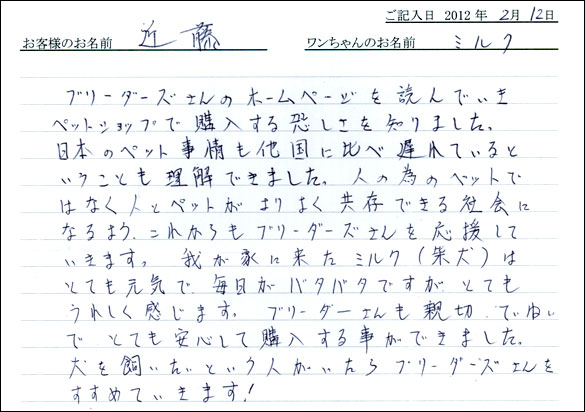 ご記入日 2012年 2月 12日
お客様のお名前 近藤 ワンちゃんのお名前 ミルク
ブリーダーズさんのホームページを読んでいき
ペットショップで購入する恐しさを知りました。
日本のペット事情も他国に比べ遅れていると
いうことも理解できました。人の為のペットで
はなく人とペットがよりよく共存できる社会に
なるよう、これからもブリーダーズさんを応援して
いきます。我が家に来たミルク(柴犬)は
とても元気で、毎日がバタバタですがとても
うれしく感じます。ブリーダーさんも親切、ていねい
で とても安心して購入する事ができました。
犬を飼いたいという人がいたらブリーダーズさんを
すすめていきます!